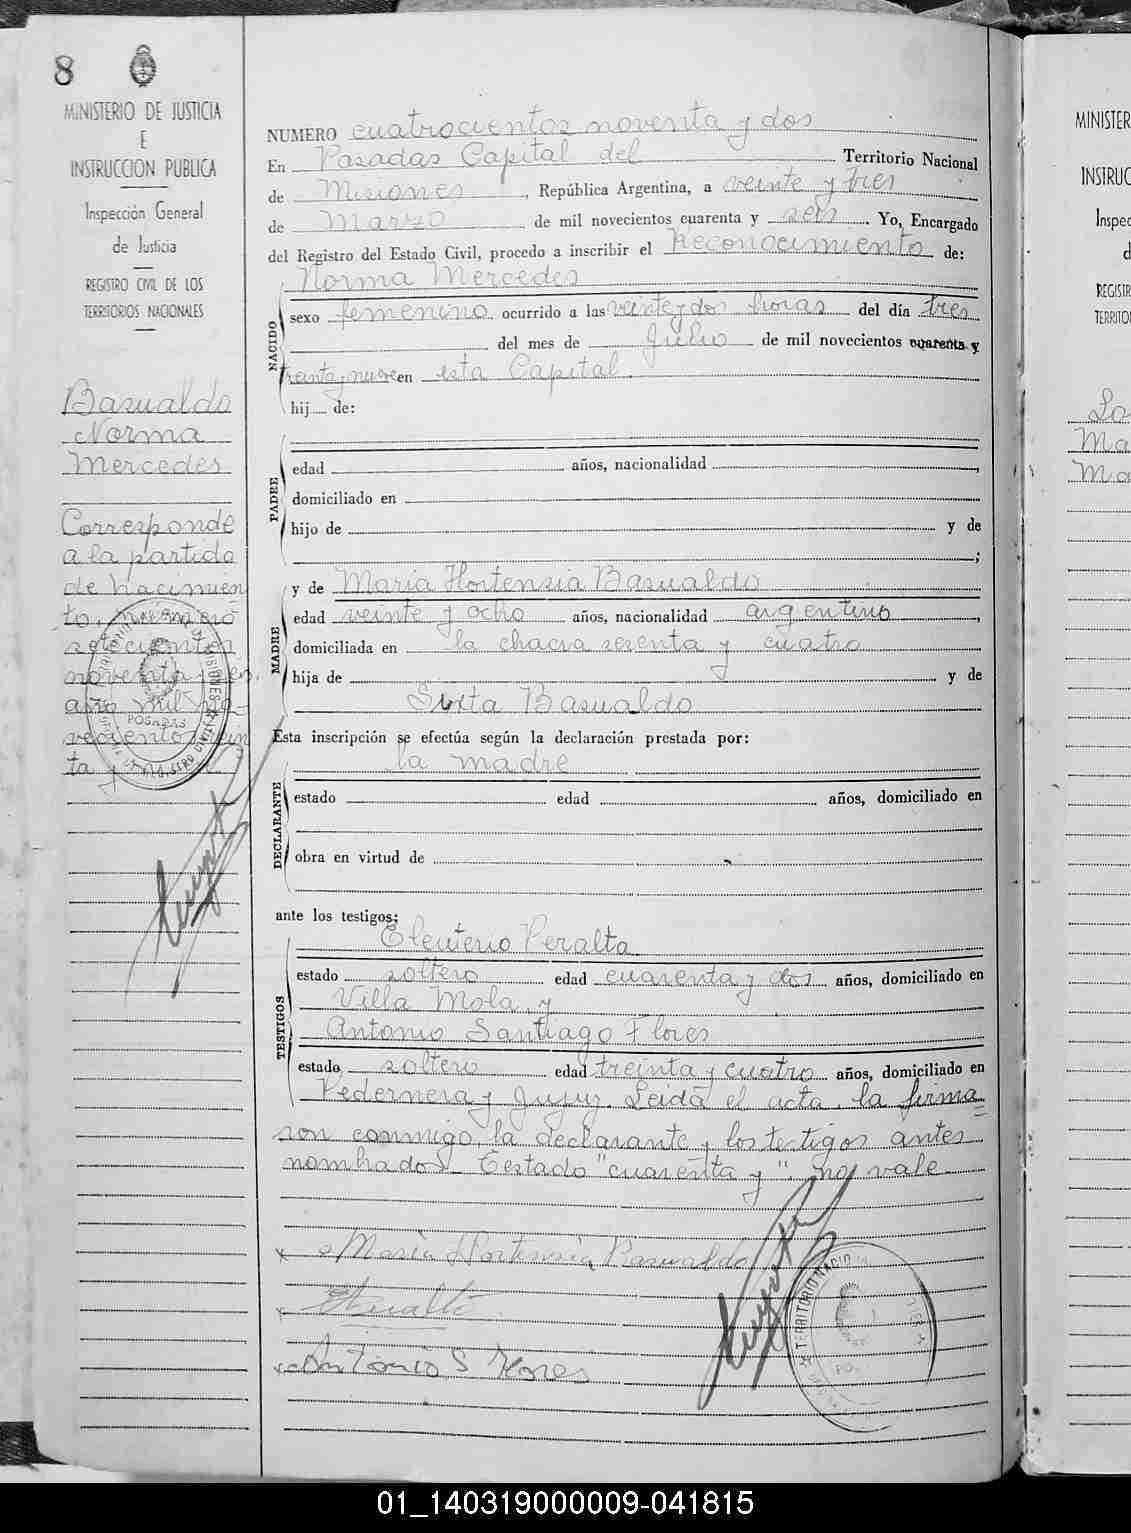 8
MINISTERIO DE JUSTICIA
E
INSTRUCCION PUBLICA
Inspección General
de Justicia
REGISTRO CIVIL DE LOS
TERRITORIOS NACIONALES
Basualdo
Norma
Mercedes
Corresponde
a la partida
de nacimien
to, número
setecientos
noventa y
año mil no-
vecientos
ta y
POSADAS
NUMERO cuatrocientos noventa y dos
En Posadas Capital del Territorio Nacional
de Misiones, República Argentina, a veinte y tres
de Marzo de mil novecientos cuarenta y seis. Yo, Encargado
del Registro del Estado Civil, procedo a inscribir el Reconocimiento de:
Norma Mercedes
NACIDO
sexo femenino ocurrido a las veinte y dos horas del día tres
del mes de Julio de mil novecientos cuarenta y
treinta y nueve en esta Capital.
hij de:
PADRE
edad años, nacionalidad ,
domiciliado en
hijo de y de
;
MADRE
y de Maria Hortensia Basualdo
edad veinte y ocho años, nacionalidad argentino,
domiciliada en la chacra sesenta y cuatro
hija de y de
Sixta Basualdo
Esta inscripción se efectúa según la declaración prestada por:
la madre
DECLARANTE
estado edad años, domiciliado en
obra en virtud de
ante los testigos:
Eleuterio Peralta
TESTIGOS
estado soltero edad cuarenta y dos años, domiciliado en
Villa Mola, y
Antonio Santiago Flores
estado soltero edad treinta y cuatro años, domiciliado en
Pedernera y Jujuy. Leida el acta, la firma
son conmigo, la declarante y los testigos antes
nombrados. Testado "cuarenta y". no vale
x Maria Hortensia Basualdo
x EPeralta
x Antonio S Flores
TERRITORIO NACIO
MINISTER
INSTRUC
Inspec
d
REGISTR
TERRITO
Ma
01_140319000009-041815